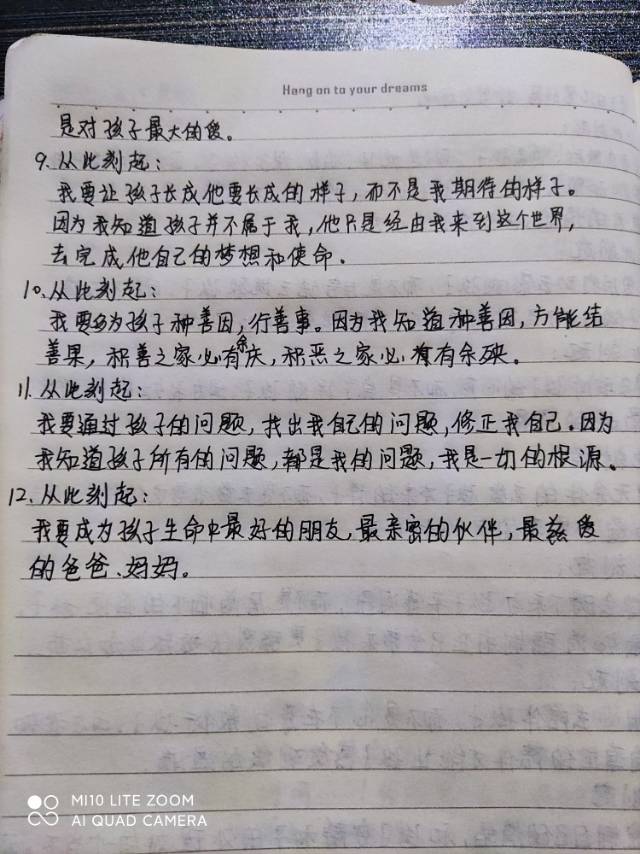 Hang on to your dreams
是对孩子最大的爱。
9.从此刻起:
我要让孩子长成他要长成的样子,而不是我期待的样子。
因为我知道孩子并不属于我,他只是经由我来到这个世界,
去完成他自己的梦想和使命。
10.从此刻起:
我要多为孩子种善因,行善事。因为我知道种善因,方能结
善果,积善之家必有余庆,积恶之家必有余殃。
11.从此刻起:
我要通过孩子的问题,找出我自己的问题,修正我自己。因为
我知道孩子所有的问题,都是我的问题,我是一切的根源。
12.从此刻起:
我要成为孩子生命中最好的朋友,最亲密的伙伴,最慈爱
的爸爸、妈妈。
MI10 LITE ZOOM
AI QUAD CAMERA